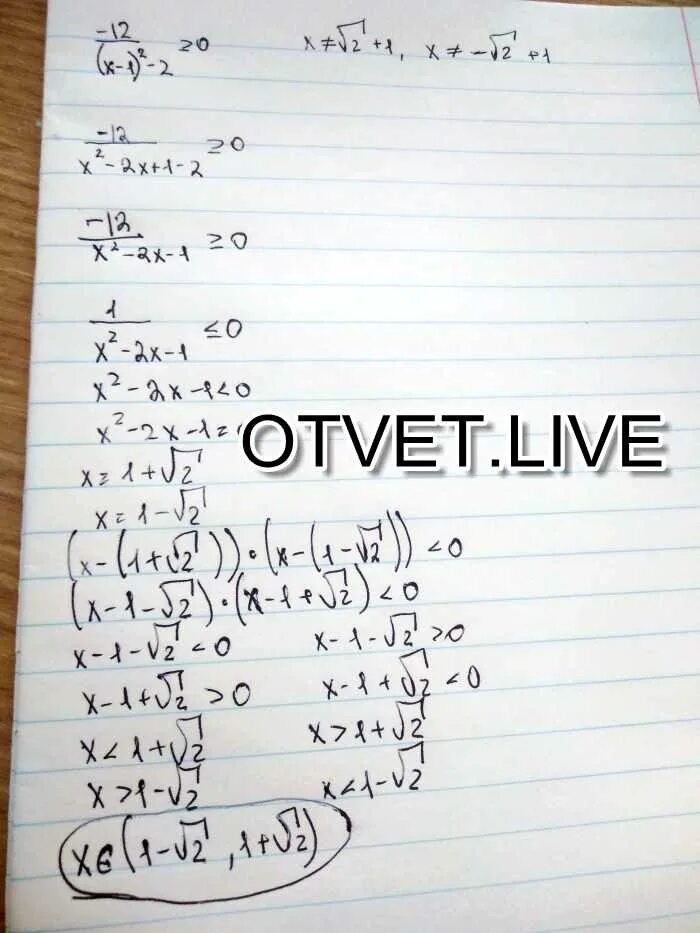 -12/((x-1)²-2) ≥0   x≠√2+1, x≠-√2+1
-12/(x²-2x+1-2) ≥0
-12/(x²-2x-1) ≥0
1/(x²-2x-1) ≤0
x²-2x-1<0
x²-2x-1=
OTVET.LIVE
x=1+√2
x=1-√2
(x-(1+√2))·(x-(1-√2))<0
(x-1-√2)·(x-1+√2)<0
x-1-√2<0   x-1-√2>0
x-1+√2>0   x-1+√2<0
x<1+√2   x>1+√2
x>1-√2   x<1-√2
x∈(1-√2,1+√2)